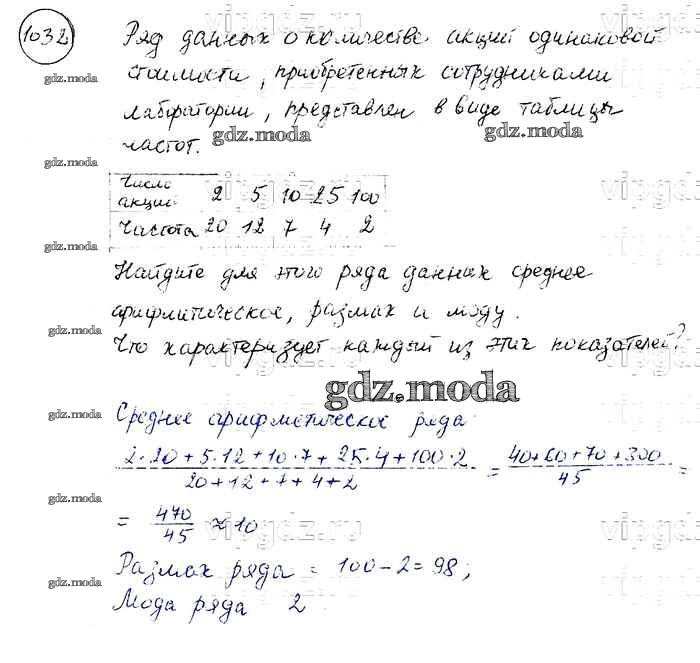 1032
Ряд данных о количестве акций одинаковой
стоимости, приобретенных сотрудниками
лаборатории, представлен в виде таблицы
частот.
Число акций 2 5 10 25 100
Частота 20 12 7 4 2
Найдите для этого ряда данных среднее
арифметическое, размах и моду.
Что характеризует каждый из этих показателей?
gdz.moda
Среднее арифметическое ряда
2·20+5·12+10·7+25·4+100·2 / 20+12+7+4+2 = 40+60+70+300 / 45 =
= 470/45 ≈ 10
Размах ряда = 100-2=98;
Мода ряда 2